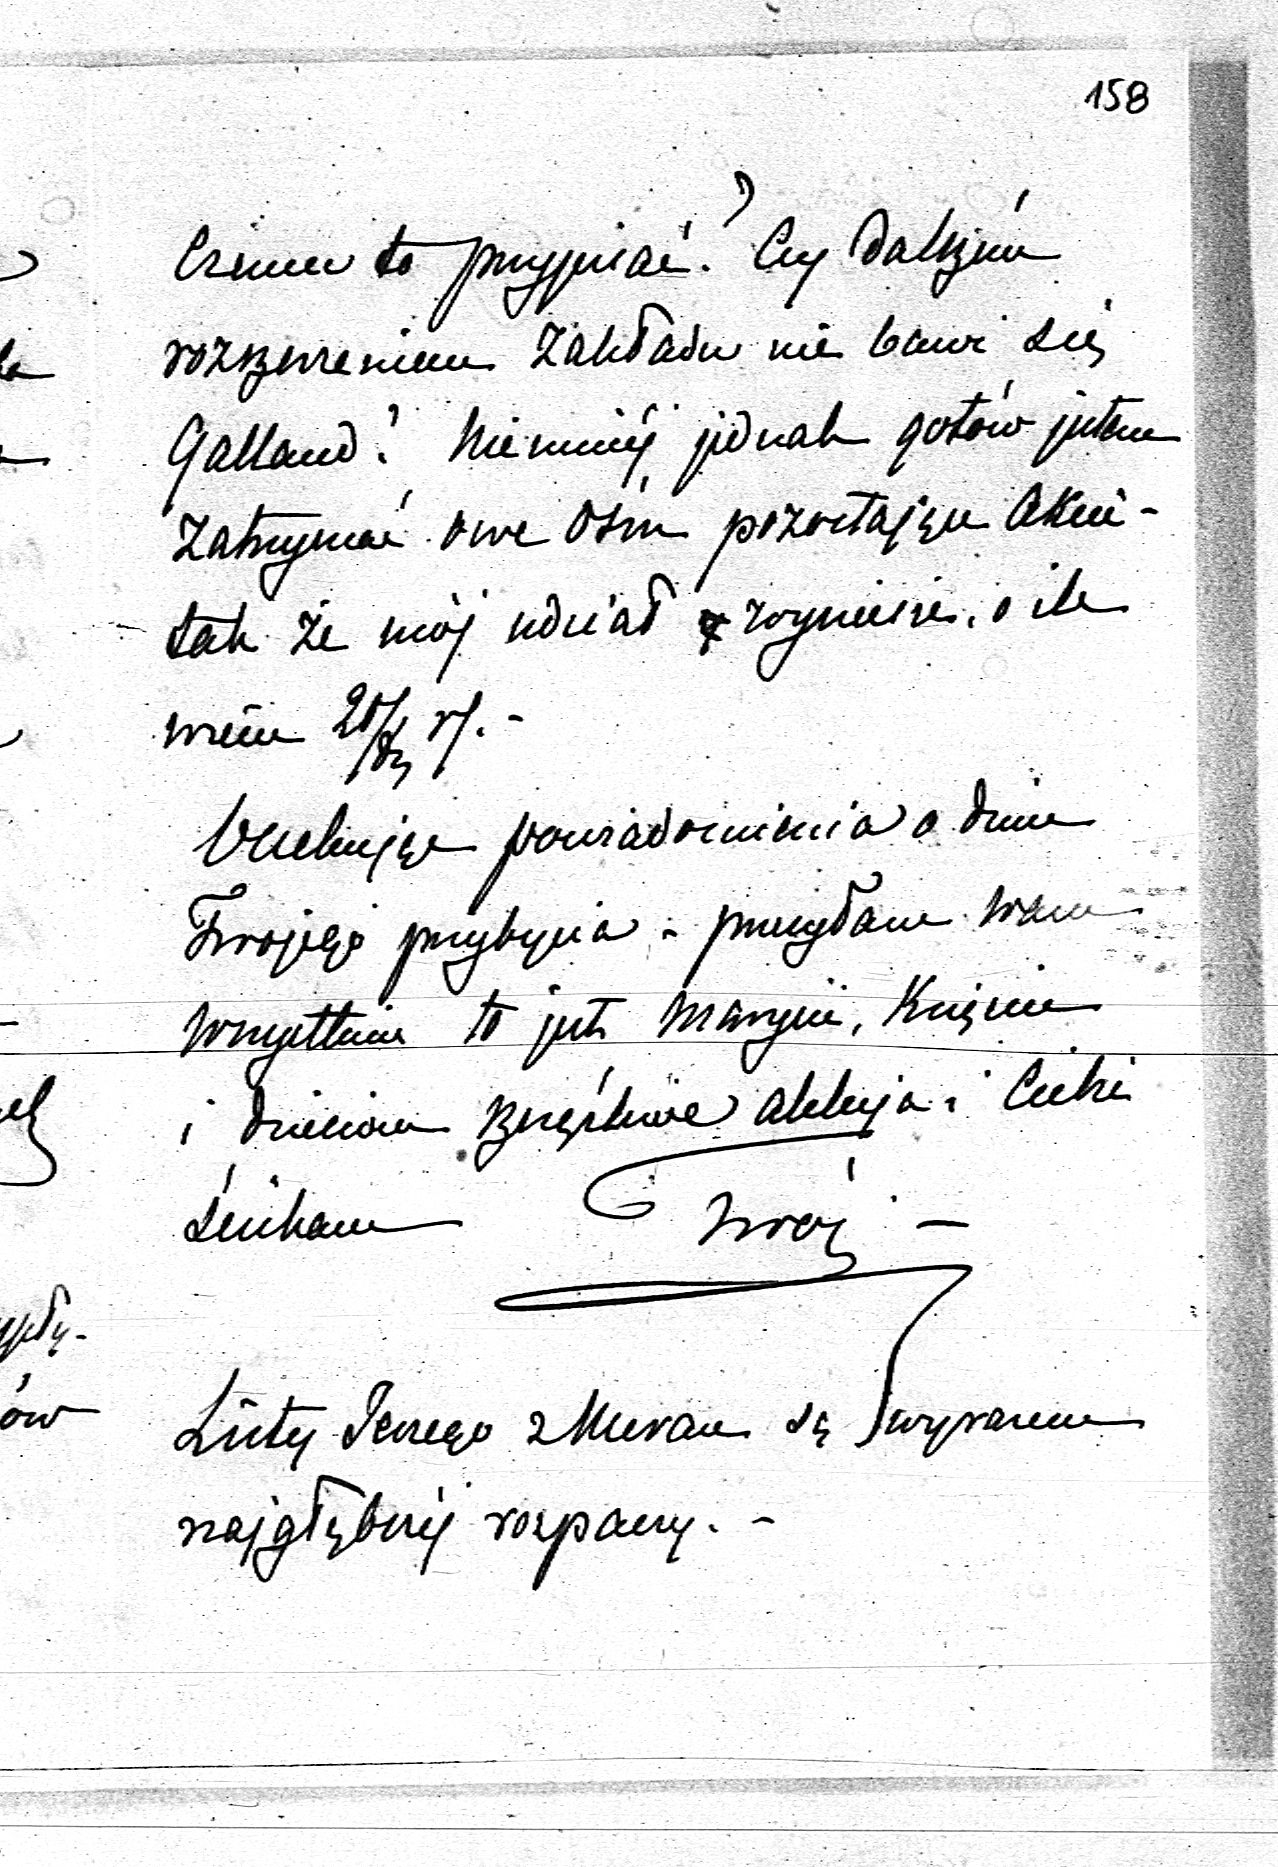 158
Czemu to przypisać? Czy dalszém
rozszerzeniem Zakładu nie bawi się
Galland? Niemniéj jednak gotów jestem
zatrzymać owe ośm pozostające Akcie -
tak że mój udział wyniesie, o ile
wiem 20/m rf. -
Oczekując powiadomienia o dniu
Twojego przybycia - przesyłam Wam
wszystkim to jest Maryni, Kuziuni
i dzieciom szczęśliwe alleluja i Ciebie
ściskam Twój -
Listy Jerzego z Meran są wyrazem
najgłębszéj rozpaczy. -